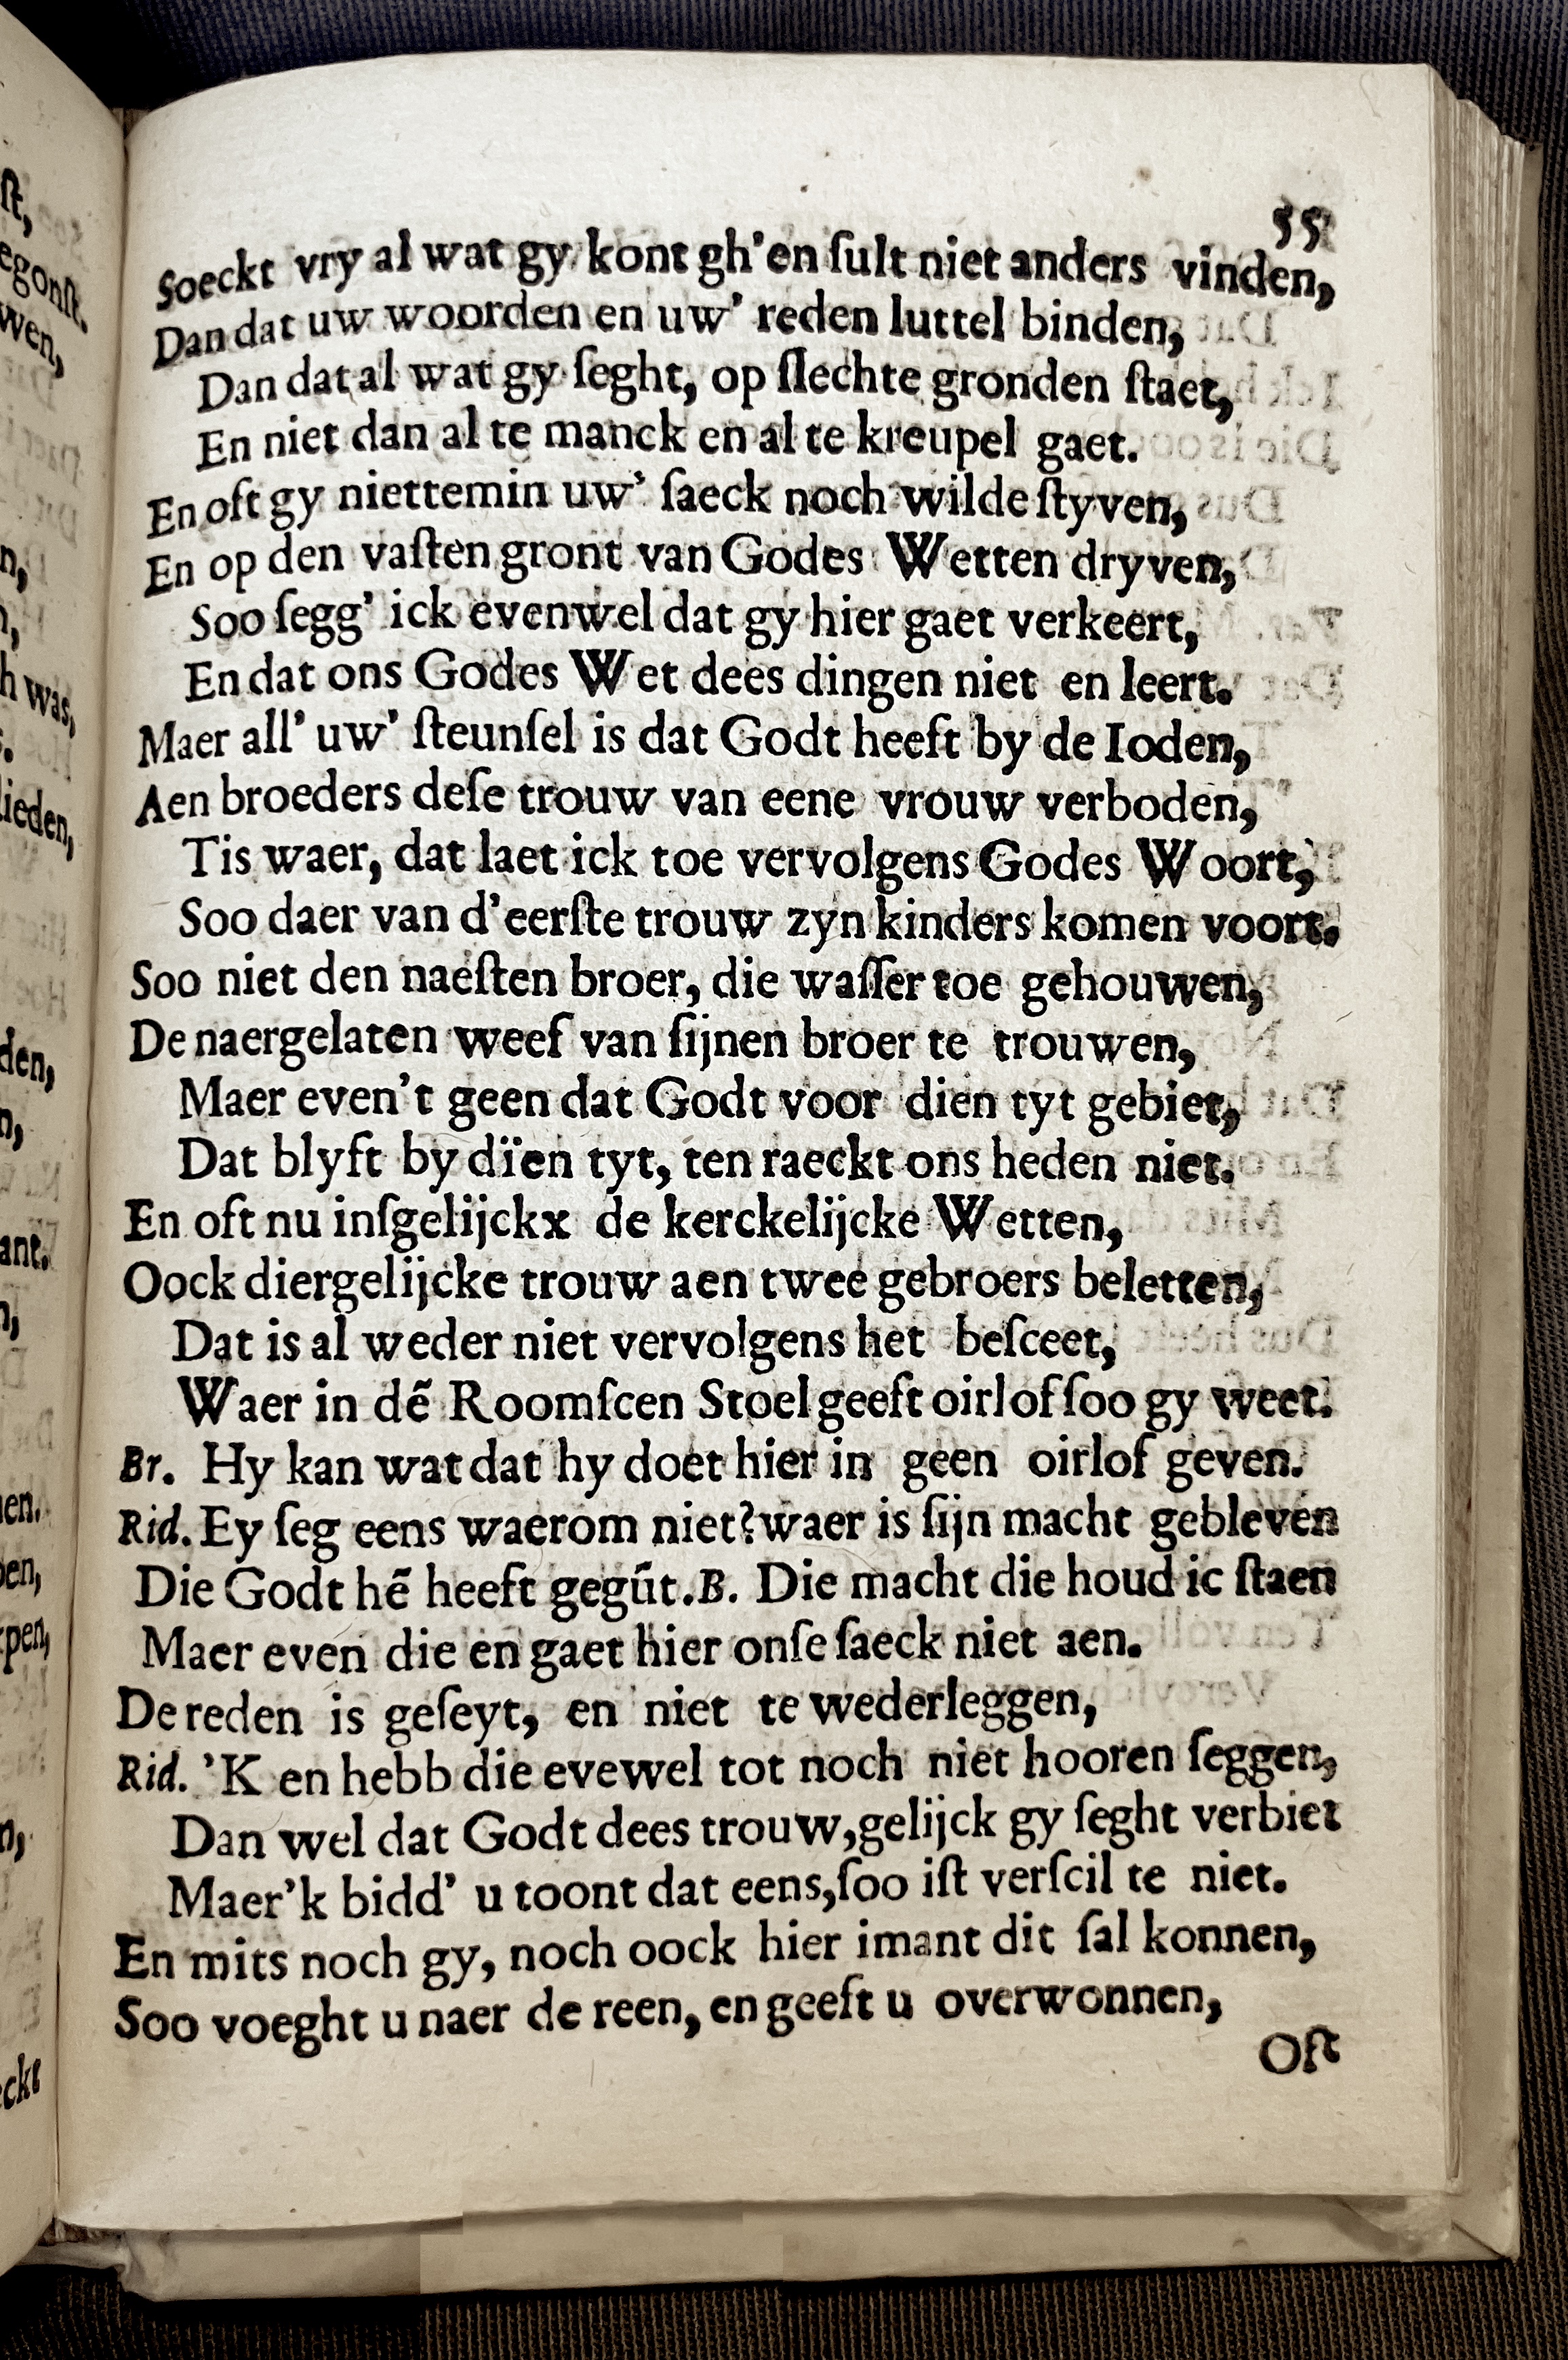 55
Soeckt vry al wat gy kont gh'en ſult niet anders vinden,
Dan dat uw woorden en uw' reden luttel binden,
Dan dat al wat gy ſeght, op ſlechte gronden ſtaet,
En niet dan al te manck en al te kreupel gaet.
En oft gy niettemin uw' ſaeck noch wilde ſtyven,
En op den vaſten gront van Godes Wetten dryven,
Soo ſegg' ick evenwel dat gy hier gaet verkeert,
En dat ons Godes Wet dees dingen niet en leert.
Maer all' uw' ſteunſel is dat Godt heeft by de Ioden,
Aen broeders deſe trouw van eene vrouw verboden,
Tis waer, dat laet ick toe vervolgens Godes Woort,
Soo daer van d'eerſte trouw zyn kinders komen voort.
Soo niet den naeſten broer, die waſſer toe gehouwen,
De naergelaten weef van ſijnen broer te trouwen,
Maer even't geen dat Godt voor dien tyt gebiet,
Dat blyft by dïen tyt, ten raeckt ons heden niet.
En oft nu inſgelijckx de kerckelijcke Wetten,
Oock diergelijcke trouw aen twee gebroers beletten,
Dat is al weder niet vervolgens het beſceet,
Waer in dẽ Roomſcen Stoel geeft oirlof ſoo gy weet.
Br. Hy kan wat dat hy doet hier in geen oirlof geven.
Rid. Ey ſeg eens waerom niet? waer is ſijn macht gebleven
Die Godt hẽ heeft gegũt. B. Die macht die houd ic ſtaen
Maer even die en gaet hier onſe ſaeck niet aen.
De reden is geſeyt, en niet te wederleggen,
Rid. 'K en hebb die evewel tot noch niet hooren ſeggen,
Dan wel dat Godt dees trouw, gelijck gy ſeght verbiet
Maer'k bidd' u toont dat eens, ſoo iſt verſcil te niet.
En mits noch gy, noch oock hier imant dit ſal konnen,
Soo voeght u naer de reen, en geeft u overwonnen,
Oft